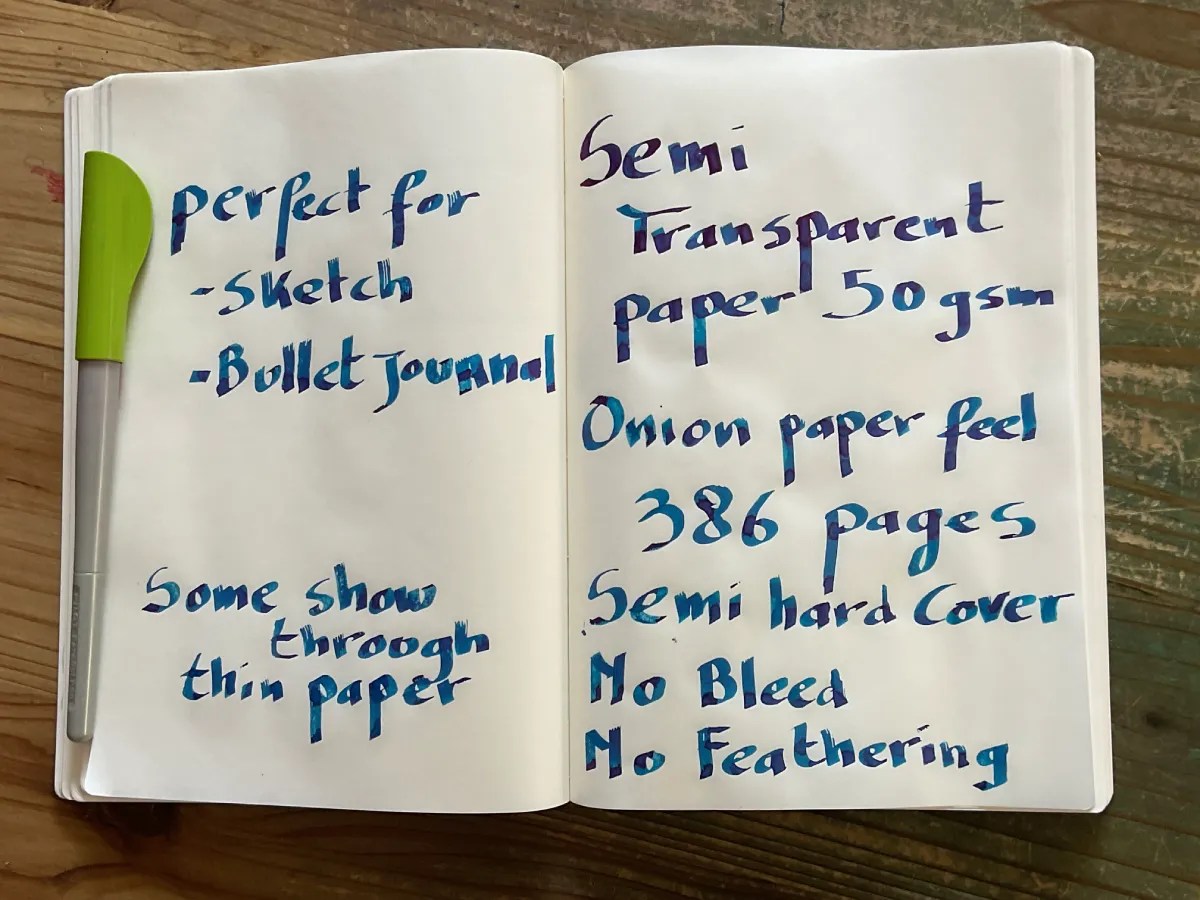 perfect for
-Sketch
-Bullet Journal
Some show
through
thin paper
Semi
Transparent
paper 50gsm
Onion paper feel
386 pages
Semi hard Cover
No Bleed
No Feathering